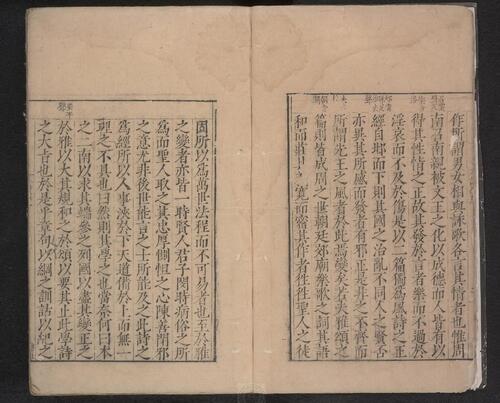 作所謂男女相與詠歌各言其情者也惟周
南召南親被文王之化以成德而人皆有以
得其性情之正故其發於言者樂而不過於
淫哀而不及於傷是以二篇獨為風詩之正
經自邶而下則其國之治亂不同人之賢否
亦異其所感而發者有邪正是非之不齊而
所謂先王之風者於此焉變矣若夫雅頌之
篇則皆成周之世朝廷郊廟樂歌之詞其語
和而莊其寬而密其作者往往聖人之徒
固所以為萬世法程而不可易者也至於雅
之變者亦皆一時賢人君子閔時病俗之所
為而聖人取之其忠厚惻怛之心陳善閉邪
之意尤非後世能言之士所能及之此詩之
為經所以人事浹於下天道備於上而無一
理之不具也曰然則其學之也當奈何曰本
之二南以求其端參之列國以盡其變正之
於雅以大其規和之於頌以要其止此學詩
之大旨也於是乎章句以綱之訓詁以紀之